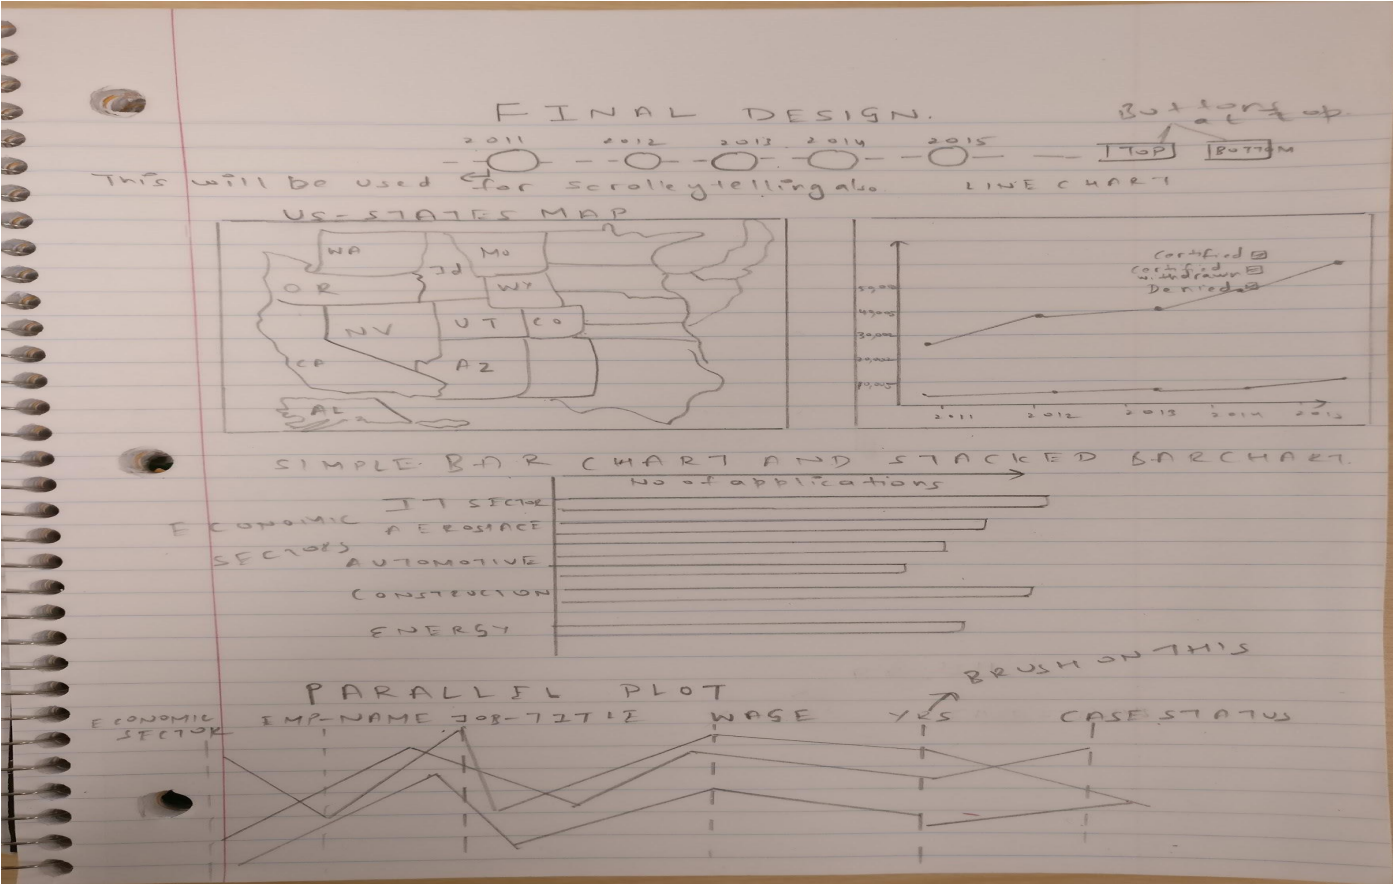 FINAL DESIGN.
Buttons at top
2011 2012 2013 2014 2015
TOP BOTTOM
This will be used for scrolleytelling also.
LINE CHART
US-STATES MAP
WA
MO
ID
OR
WY
NV
UT
CO
CA
AZ
AL
Certified
Certified withdrawn
Denied
30,000
20,000
10,000
2011 2012 2013 2014 2015
SIMPLE BAR CHART AND STACKED BARCHART.
No of applications
ECONOMIC SECTORS
IT SECTOR
AEROSPACE
AUTOMOTIVE
CONSTRUCTION
ENERGY
BRUSH ON THIS
PARALLEL PLOT
ECONOMIC SECTOR
EMP-NAME JOB-TITLE WAGE CASE STATUS